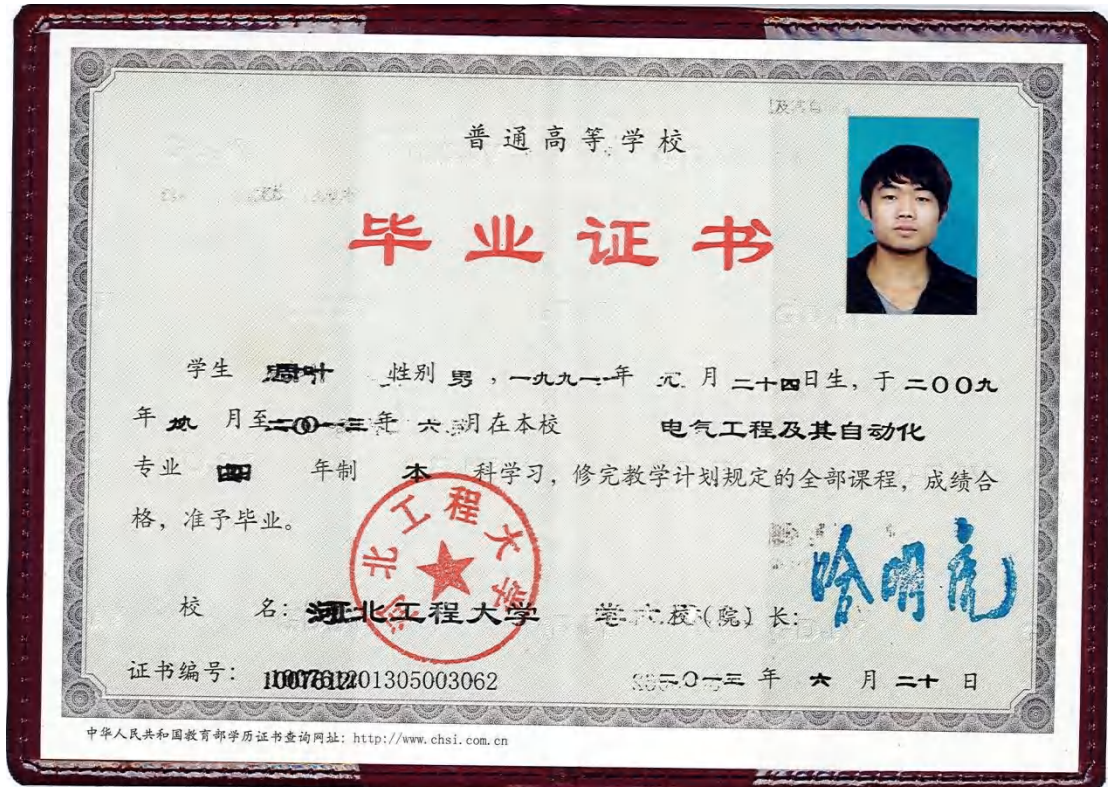 普通高等学校
毕业证书
学生 周叶 性别 男，一九九一年 元 月 二十四日生，于 二〇〇九
年 九 月至二〇一三年 六 月在本校 电气工程及其自动化
专业 四 年制 本 科学习，修完教学计划规定的全部课程，成绩合
格，准予毕业。
河北工程大学
校 名：河北工程大学 校（院）长：哈明虎
证书编号：100761201305003062 二〇一三 年 六 月 二十 日
中华人民共和国教育部学历证书查询网址：http://www.chsi.com.cn